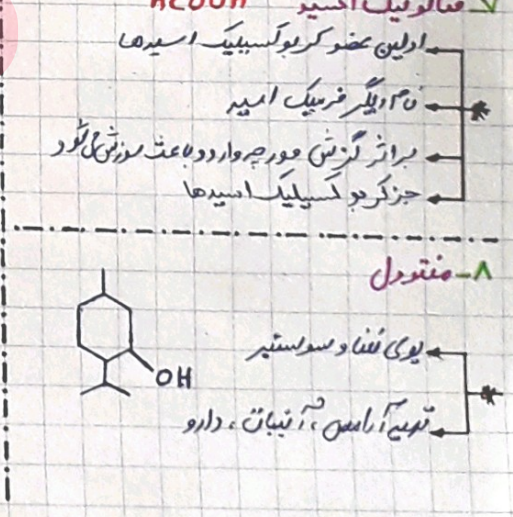 ۷- متانوئیک اسید HCOOH
اولین عضو کربوکسیلیک اسیدها
نام دیگر فرمیک اسید
بر اثر گزش مورچه وارد و باعث سوزش می‌شود
جز کربوکسیلیک اسیدها
۸- منتول
بوی نعنا و
OH
آرایشی، آبنبات، دارو